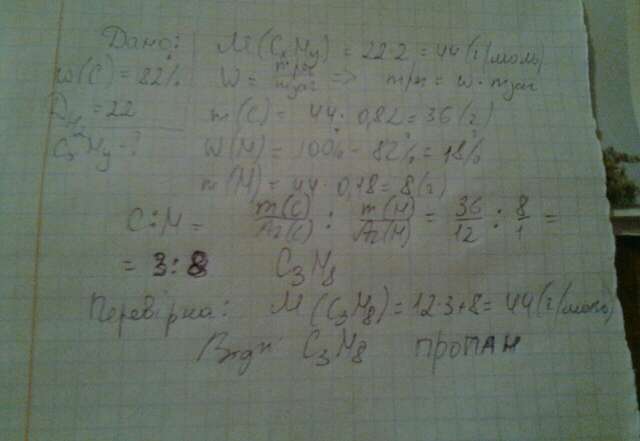 Дано:
M(CxHy) = 22·2 = 44 (г/моль)
w(C) = 82%
W = mреч/mзаг => mр/н = w · mзаг
DH2 = 22
m(C) = 44 · 0,82 = 36 (г)
CxHy - ?
W(H) = 100% - 82% = 18%
m(H) = 44 · 0,18 = 8 (г)
C:H = m(C)/Ar(C) : m(H)/Ar(H) = 36/12 : 8/1 =
= 3:8 C3H8
Перевірка: M(C3H8) = 12·3+8 = 44 (г/моль)
Відп: C3H8 пропан